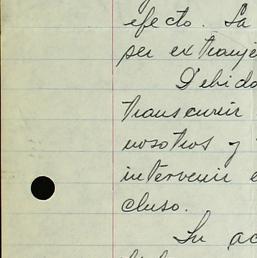 efecto. La
ser extranje
Debido
transcurrir
nosotros y
intervenir e
cluso.
Su ac